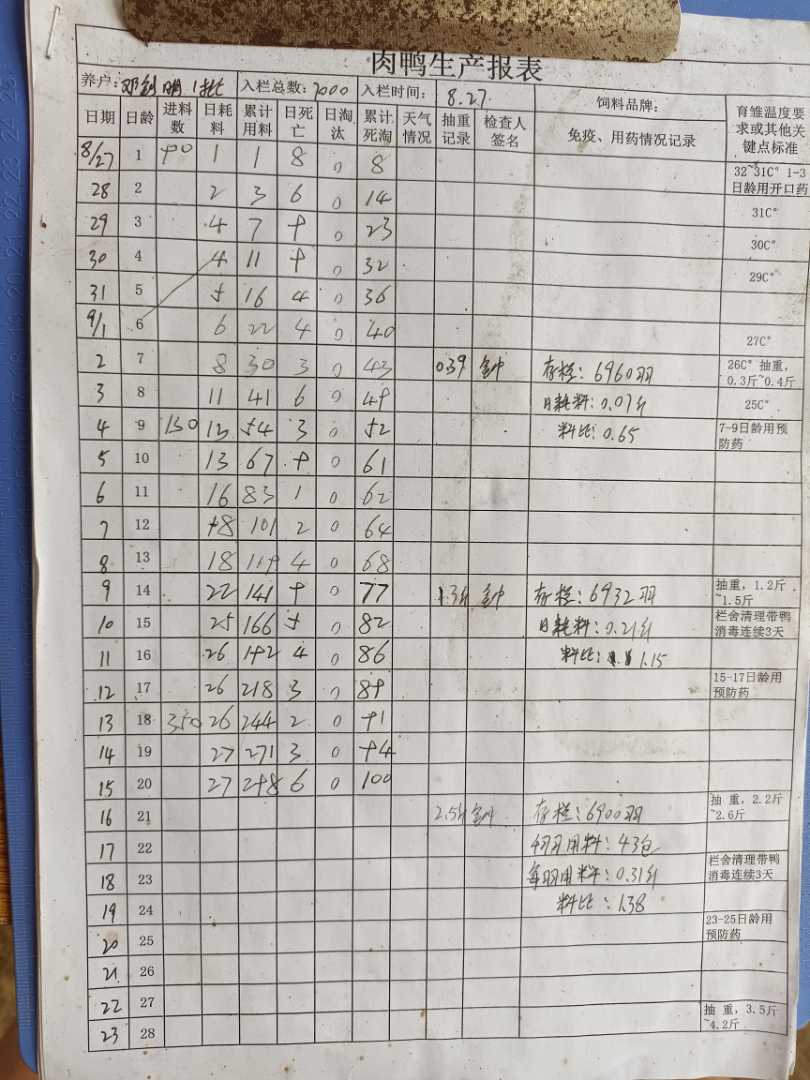 肉鸭生产报表
养户: 邓剑明 1批 入栏总数: 7000 入栏时间: 8.27. 饲料品牌: 育雏温度要求或其他关键点标准
日期 日龄 进料数 日耗料 累计用料 日死亡 日淘汰 累计死淘 天气情况 抽重记录 检查人签名 免疫、用药情况记录
8/27 1 90 1 1 8 0 8 32~31C° 1-3日龄用开口药
28 2 2 3 6 0 14 31C°
29 3 4 7 9 0 23 30C°
30 4 4 11 9 0 32 29C°
31 5 5 16 4 0 36
9/1 6 6 22 4 0 40 27C°
2 7 8 30 3 0 43 0.39 存栏: 6960羽 26C° 抽重, 0.3斤~0.4斤
3 8 11 41 6 0 49 日耗料: 0.07斤 25C°
4 9 150 13 54 3 0 52 料比: 0.65 7-9日龄用预防药
5 10 13 67 9 0 61
6 11 16 83 1 0 62
7 12 18 101 2 0 64
8 13 18 119 4 0 68
9 14 22 141 9 0 77 1.3斤 存栏: 6932羽 抽重, 1.2斤~1.5斤
10 15 25 166 5 0 82 日耗料: 0.21斤 栏舍清理带鸭消毒连续3天
11 16 26 192 4 0 86 料比: 1.15
12 17 26 218 3 0 89 15-17日龄用预防药
13 18 350 26 244 2 0 91
14 19 27 271 3 0 94
15 20 27 298 6 0 100
16 21 2.5斤 存栏: 6900羽 抽 重, 2.2斤~2.6斤
17 22 用料: 43包
18 23 每羽用料: 0.31斤 栏舍清理带鸭消毒连续3天
19 24 料比: 1.38
20 25 23-25日龄用预防药
21 26
22 27
23 28 抽 重, 3.5斤~4.2斤